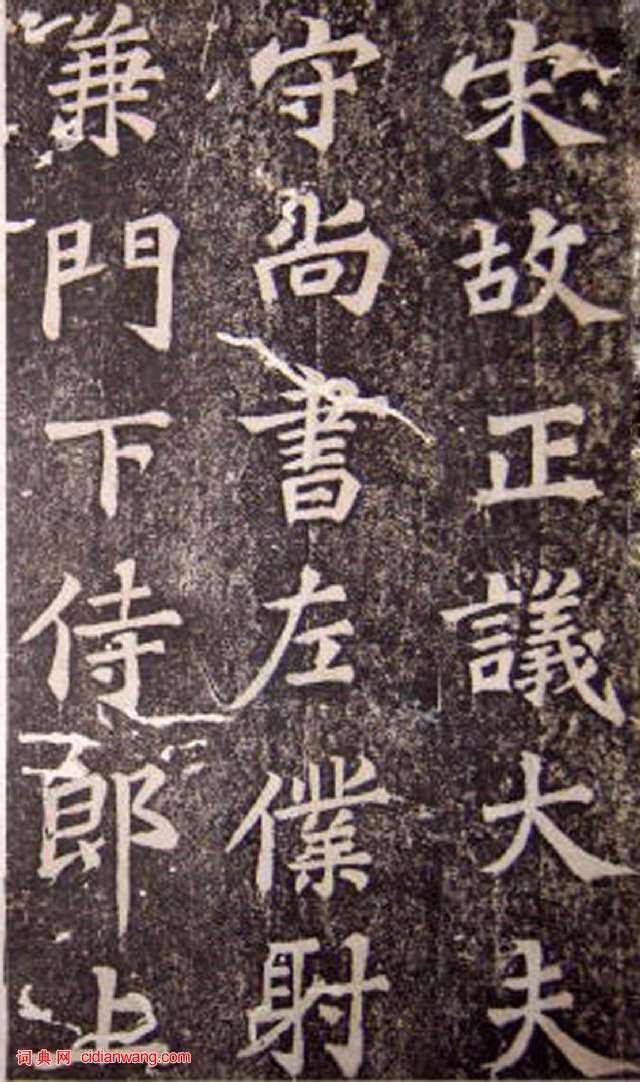 宋故正議大夫
守尚書左僕射
兼門下侍郎上
词典网 cidianwang.com